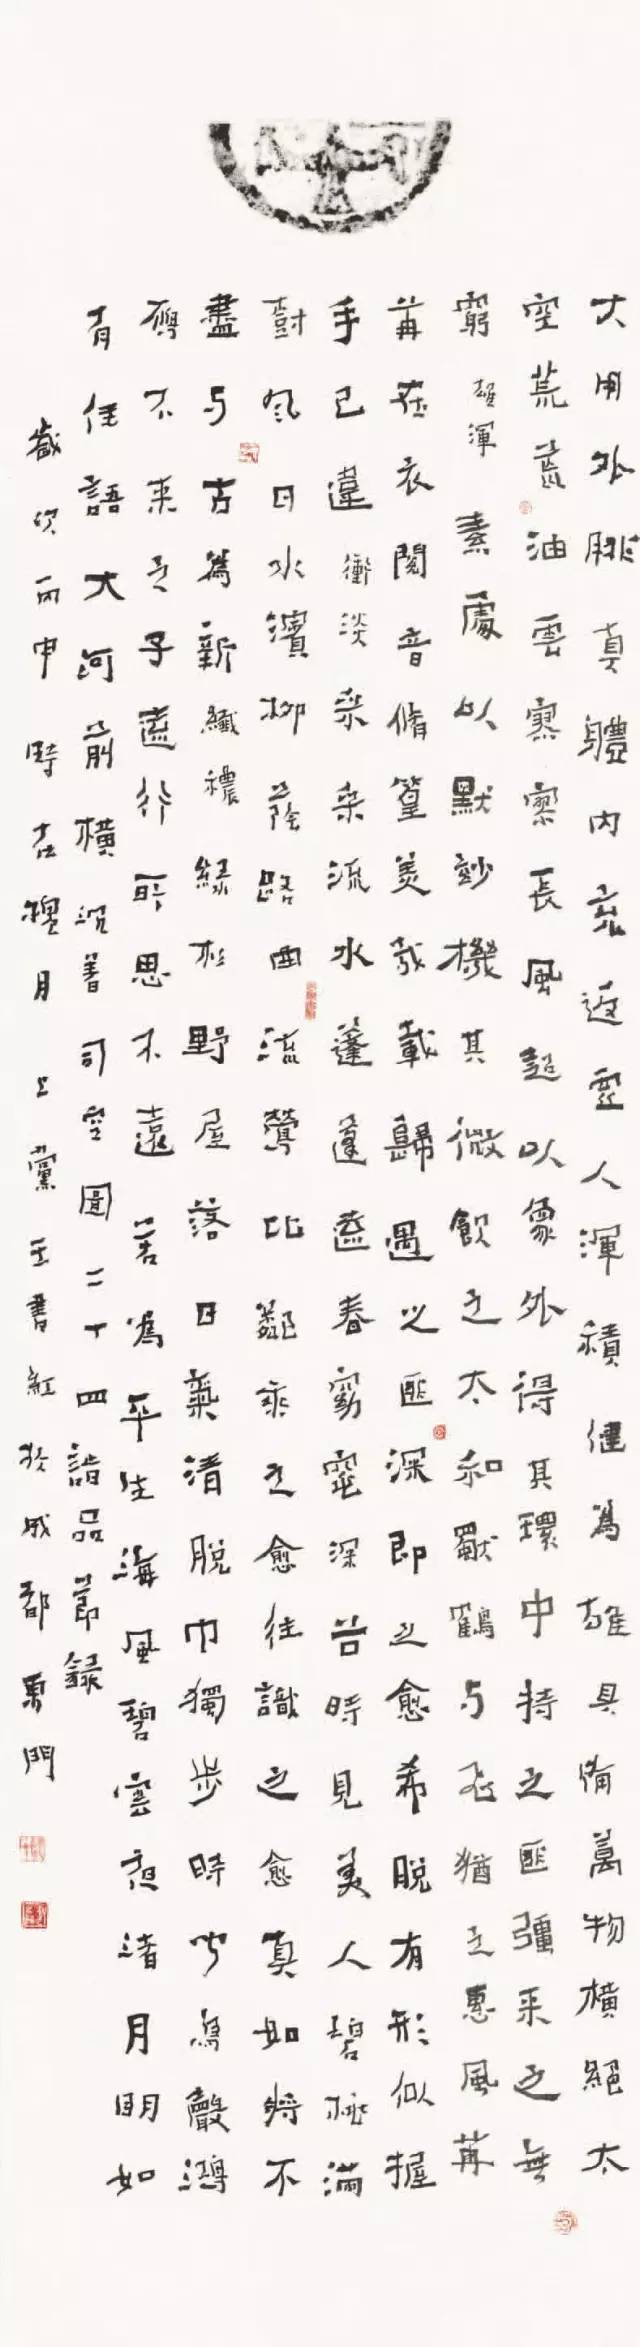 大用外腓真體內充返虛人渾積健為雄具備萬物橫絕太
空荒荒油雲寥寥長風超以象外得其環中持之匪彊来之無
窮雄渾素處以默妙機其微飲之太和獨鶴与飛猶之惠風苒
苒在衣閱音脩篁美哉載歸遇之匪深即之愈希脫有形似握
手已違衝淡采采流水蓬蓬遠春窈窕深谷時見美人碧桃滿
樹風日水濱柳蔭路曲流鶯比鄰乘之愈往識之愈真如將不
盡与古為新纖穠緑杉野屋落日氣清脫巾獨步時聞鳥聲鴻
雁不来之子遠行所思不遠若為平生海風碧雲夜渚月明如
有佳語大河前橫沉著司空圖二十四詩品節録
歲次丙申時在槐月上黨王書紅於成都東門